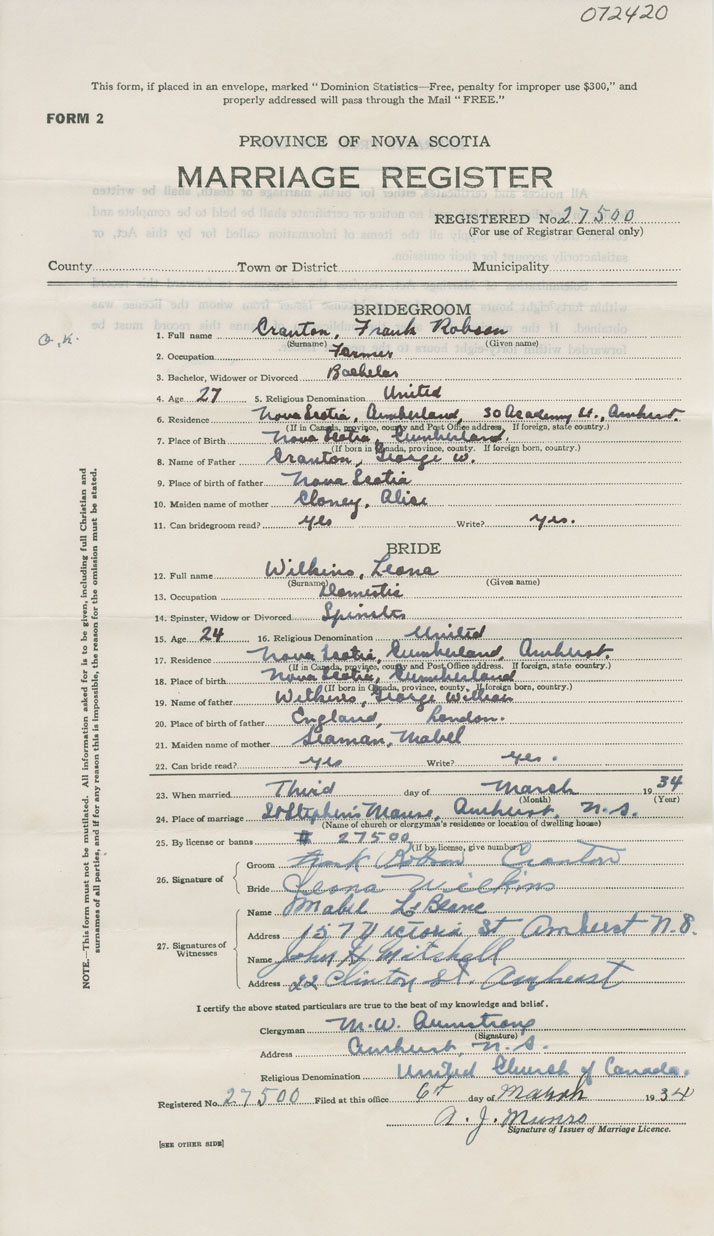 072420
This form, if placed in an envelope, marked "Dominion Statistics—Free, penalty for improper use $300," and
properly addressed will pass through the Mail "FREE."
FORM 2
PROVINCE OF NOVA SCOTIA
MARRIAGE REGISTER
REGISTERED No. 27500
(For use of Registrar General only)
County Town or District Municipality
BRIDEGROOM
O.K.
1. Full name Cranton, Frank Robson
(Surname) (Given name)
2. Occupation Farmer
3. Bachelor, Widower or Divorced Bachelor
4. Age 27 5. Religious Denomination United
6. Residence Nova Scotia, Cumberland, 30 Academy St., Amherst.
(If in Canada, province, county and Post Office address. If foreign, state country.)
7. Place of Birth Nova Scotia, Cumberland.
(If born in Canada, province, county. If foreign born, country.)
8. Name of Father Cranton, George W.
9. Place of birth of father Nova Scotia
10. Maiden name of mother Cloney, Alice
11. Can bridegroom read? yes Write? yes.
BRIDE
12. Full name Wilkins, Leona
(Surname) (Given name)
13. Occupation Domestic
14. Spinster, Widow or Divorced Spinster
15. Age 24 16. Religious Denomination United
17. Residence Nova Scotia, Cumberland, Amherst.
(If in Canada, province, county and Post Office address. If foreign, state country.)
18. Place of birth Nova Scotia, Cumberland
(If born in Canada, province, county, If foreign born, country.)
19. Name of father Wilkins, George William
20. Place of birth of father England, London.
21. Maiden name of mother Seaman, Mabel
22. Can bride read? yes Write? yes.
23. When married Third day of March 1934
(Month) (Year)
24. Place of marriage St Stephen's Manse, Amherst, N.S.
(Name of church or clergyman's residence or location of dwelling house)
25. By license or banns # 27500
(If by license, give number)
26. Signature of
Groom Frank Robson Cranton
Bride Leona Wilkins
27. Signatures of Witnesses
Name Mabel LeBlanc
Address 157 Victoria St Amherst N.S.
Name John H Mitchell
Address 22 Clinton St. Amherst
I certify the above stated particulars are true to the best of my knowledge and belief.
Clergyman M.W. Armstrong
(Signature)
Address Amherst, N.S.
Religious Denomination United Church of Canada.
Registered No. 27500 Filed at this office 6th day of March 1934
A. J. Munro
Signature of Issuer of Marriage Licence.
[SEE OTHER SIDE]
NOTE.—This form must not be mutilated. All information asked for is to be given, including full Christian and
surnames of all parties, and if for any reason this is impossible, the reason for the omission must be stated.